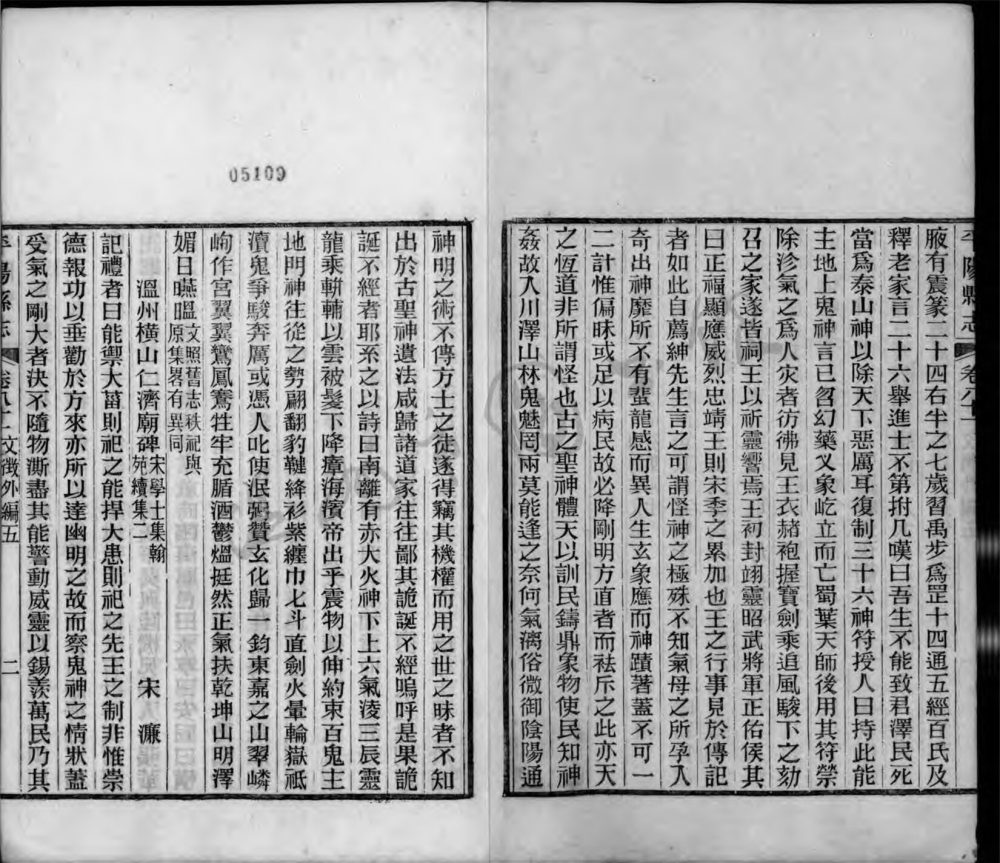 平陽縣志 卷八十
腋有震篆二十四右半之七歲習禹步爲罡十四通五經百氏及
釋老家言二十六舉進士不第拊几嘆曰吾生不能致君澤民死
當爲泰山神以除天下惡厲耳復制三十六神符授人曰持此能
主地上鬼神言已名幻藥叉象屹立而亡蜀葉天師後用其符禜
除沴氣之爲人灾者彷彿見王衣赭袍握寶劍乘追風駿下之劾
召之家遂皆祠王以祈靈響焉王初封翊靈昭武將軍正佑侯其
曰正福顯應威烈忠靖王則宋季之累加也王之行事見於傳記
者如此自薦紳先生言之可謂怪神之極殊不知氣母之所孕入
奇出神靡所不有蜚龍感而異人生玄象應而神蹟著蓋不可一
二計惟偏昧或足以病民故必降剛明方直者而袪斥之此亦天
之恆道非所謂怪也古之聖神體天以訓民鑄鼎象物使民知神
姦故入川澤山林鬼魅罔兩莫能逢之奈何氣漓俗微御陰陽通
神明之術不傳方士之徒遂得竊其機權而用之世之昧者不知
出於古聖神遺法咸歸諸道家往往鄙其詭誕不經嗚呼是果詭
誕不經者耶系之以詩曰南離有赤大火神下上六氣淩三辰靈
龍乘軿輔以雲被髮下降瘴海濱帝出乎震物以伸約束百鬼主
地門神往從之勢翮翻豹鞬絳衫紫纏巾七斗直劍火暈輪嶽祇
瀆鬼爭駿奔厲或憑人叱使泯弼贊玄化歸一鈞東嘉之山翠嶙
峋作宮翼翼鸑鳳騫牲牢充腯酒鬱熅挺然正氣扶乾坤山明澤
媚日曣㬈文照舊志秩祀與
原集畧有異同
溫州橫山仁濟廟碑宋學士集翰
苑續集二 宋濂
記禮者曰能禦大菑則祀之能捍大患則祀之先王之制非惟崇
德報功以垂勸於方來亦所以達幽明之故而察鬼神之情狀蓋
受氣之剛大者決不隨物澌盡其能警動威靈以錫羨萬民乃其
平陽縣志 卷八十 文徵外編五 二
05109